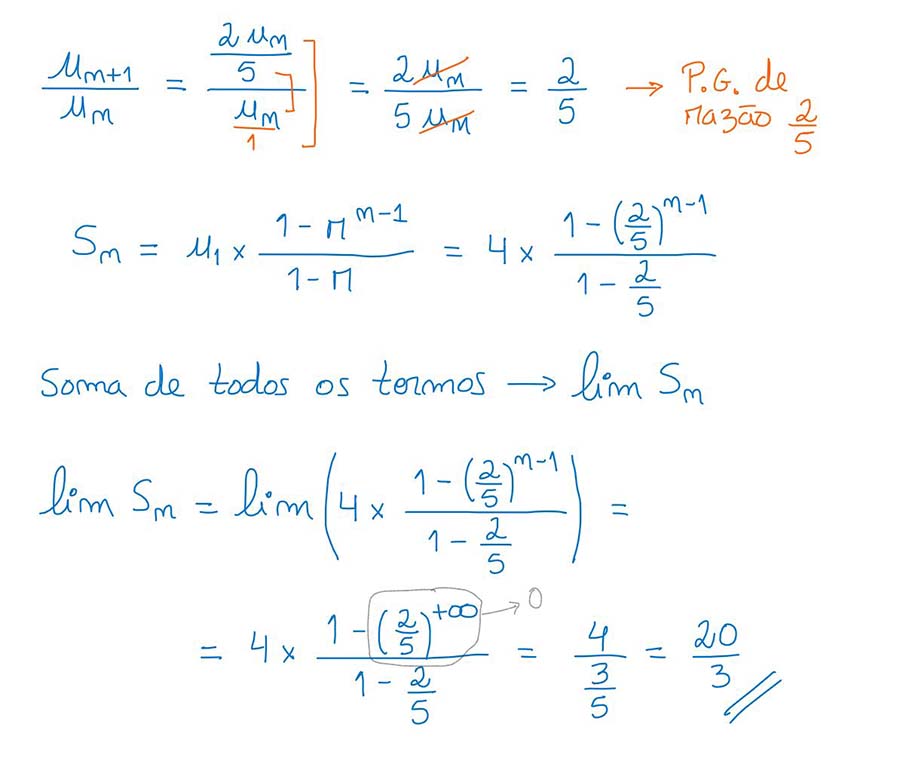 u_{n+1}/u_n = (2u_n/5)/(u_n/1) = 2u_n/5u_n = 2/5 → P.G. de razão 2/5
S_n = u_1 × (1 - r^{n-1})/(1 - r) = 4 × (1 - (2/5)^{n-1})/(1 - 2/5)
Soma de todos os termos → lim S_n
lim S_n = lim(4 × (1 - (2/5)^{n-1})/(1 - 2/5)) =
= 4 × (1 - (2/5)^{+∞})/(1 - 2/5) = 4/(3/5) = 20/3
→ 0